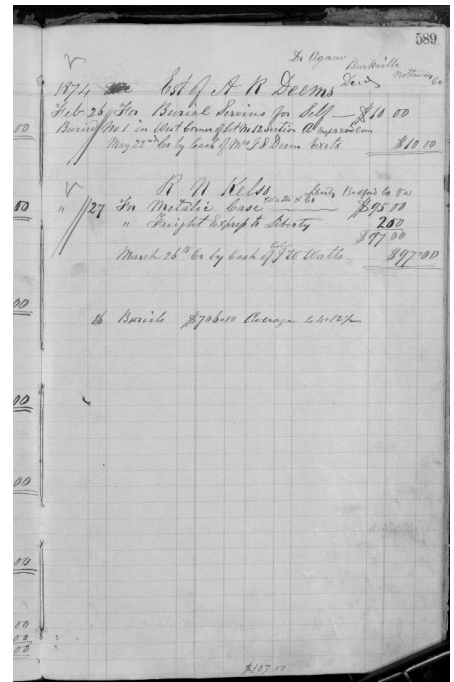 589
Dr Agnew Burkville Nottoway Co
1874 Est of A R Deems Decd
Feb 26 For Burial Services for Self — $10 00
Buried No 1 in West Corner of Lot No 12 Section A
May 22nd Cr by Cash of Mrs J S Deem $10 00
R N Kelso Liberty Bedford Co Va
Watts & Co
" 27 For Metalic Case $95 00
" Freight Exprep to Liberty 2 00
$97 00
March 26th Cr by Cash of J W Watts $97.00
16 Burials $706.00 Average 44.12½
$107.00
00
50
00
00
00
00
00
00